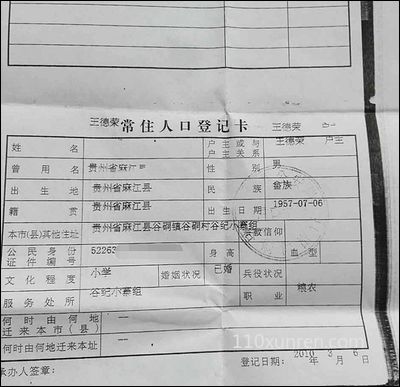 常住人口登记卡
王德荣
姓 名
户主或与户主关系
王德荣 户主
曾用名
贵州省麻江县
性 别
男
出生地
贵州省麻江县
民 族
畲族
籍 贯
贵州省麻江县
出生日期
1957-07-06
本市(县)其他住址
贵州省麻江县谷硐镇谷硐村谷纪小寨组
宗教信仰
公民身份证件编号
52263
身 高
血 型
文化程度
小学
婚姻状况
已婚
兵役状况
服务处所
谷纪小寨组
职 业
粮农
何时由何地迁来本市(县)
—
何时由何地迁来本址
—
承办人签章:
登记日期: 2010 3 6
110xunren.com